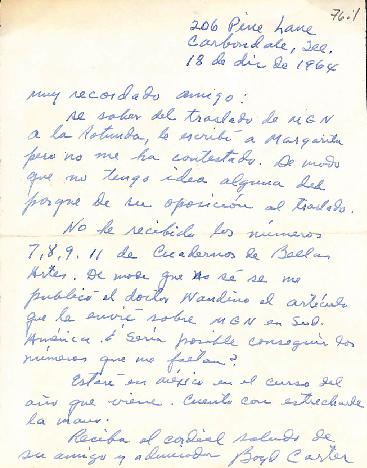 76.1
206 Pine Lane
Carbondale, Ill.
18 de dic de 1964
Muy recordado amigo:
Al saber del traslado de MGN
a la Rotunda, le escribí a Margarita
pero no me ha contestado. De modo
que no tengo idea alguna del
porque de su oposición al traslado.
No he recibido los números
7, 8, 9, 11 de Cuadernos de Bellas
Artes. De modo que no sé se me
publicó el doctor Wandino el artículo
que le envié sobre MGN en Sud.
América. ¿Sería posible conseguir los
números que me faltan?
Estaré en México en el curso del
año que viene. Cuento con estrecharle
la mano.
Reciba el cordial saludo de
su amigo y admirador Boyd Carter